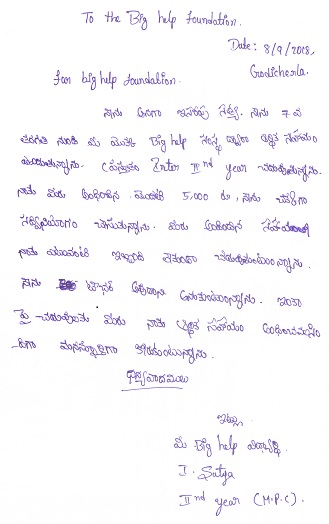 To the Big help Foundation.
Date: 8/9/2018,
Godicherla.
For big help foundation.
నేను అనగా ఇసరపు సత్య. నేను 7 వ
తరగతి నుండి మీ యొక్క Big help సంస్థ ద్వారా ఆర్థిక సహాయం
పొందుతున్నాను. ప్రస్తుతం Inter II nd year చదువుతున్నాను.
నాకు మీరు అందించిన మొత్తం 5,000 రూ, నేను చక్కగా
సద్వినియోగం చేసుకున్నాను. మీరు అందించిన సహాయంతో
నాకు ఎటువంటి ఇబ్బంది లేకుండా చదువుకుంటున్నాను.
నేను టీచర్ అవ్వాలని అనుకుంటున్నాను. ఇంకా
పై చదువులకు మీరు నాకు ఆర్థిక సహాయం అందించవలసిం
దిగా మనస్ఫూర్తిగా కోరుకుంటున్నాను.
ధన్యవాదములు
ఇట్లు
మీ Big help విద్యార్థి
I. Satya
II nd year (M.P.C)